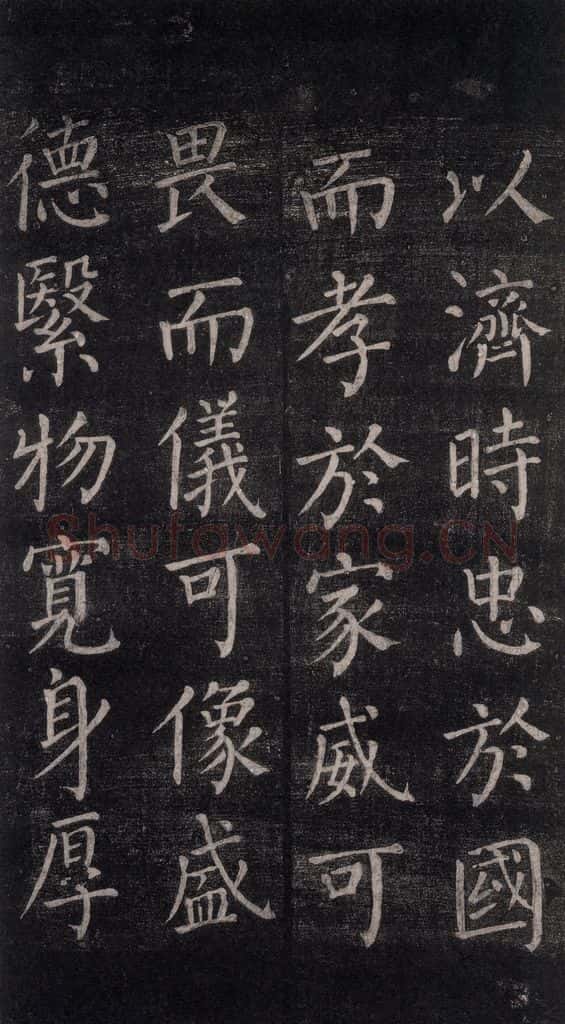 以濟時忠於國
而孝於家威可
畏而儀可像盛
德繄物寬身厚
Shufawang.CN